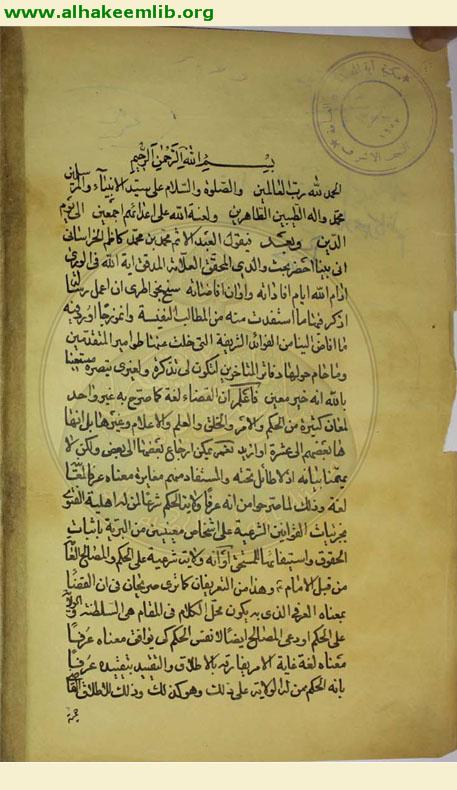 www.alhakeemlib.org
بسم الله الرحمن الرحيم
الحمد لله رب العالمين والصلوة والسلام على سيد الانبياء والمرسلين
محمد واله الطيبين الطاهرين ولعنة الله على اعدائهم اجمعين الى يوم
الدين وبعد فيقول العبد الاثم محمد بن محمد كاظم الخراساني
اني بينا احضر بحث والدي المحقق العلامة المدقق اية الله في الورى
ادام الله ايام افاداته واوان افاضاته سنح بخاطري ان اعمل رسالة
اذكر فيها ما استفدت منه من المطالب النفيسة وانموزجا اورد فيه
ما افاض الينا من الفوائد الشريفة التي خلت عنها طوامير المتقدمين
وما حام حولها دفاتر المتاخرين لتكون لي تذكرة ولغيري تبصرة مستعينا
بالله انه خير معين فاعلم ان القضاء لغة كما صرح به غير واحد
لمعان كثيرة من الحكم والامر والخلق والعلم والاعلام وغيرها بل انهاها
بعضهم الى عشرة او ازيد نعم يمكن ارجاع بعضها الى بعض ولكن لا
يهمنا بيانه اذ لا طائل تحته والمستفاد منهم مغايرة معناه عرفا لمعناه
لغة وذلك لما صرحوا من انه عرفا ولاية الحكم شرعا لمن له اهلية الفتوى
بجزئيات القوانين الشرعية على اشخاص معينين من البرية باثبات
الحقوق واستيفائها للمستحق او انه ولاية شرعية على الحكم والمصالح العامة
من قبل الامام ع وهذا من التعريفان كما ترى صريحان في ان القضاء
بمعناه العرفي الذي به يكون محل الكلام في المقام هي السلطنة والولاية
على الحكم او وعلى المصالح ايضا لا نفس الحكم كي يوافق معناه عرفا
معناه لغة غاية الامر يفارقه بالاطلاق والتقييد بتقييده عرفا
بانه الحكم ممن له الولاية على ذلك وهو كذلك وذلك لاطلاق القاضي